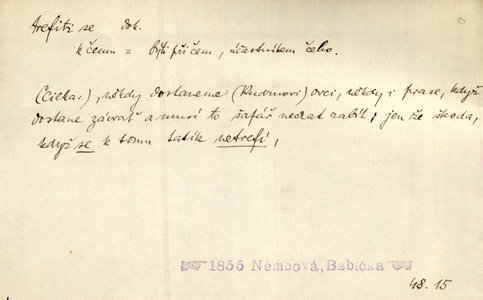 trefiti se dok.
k čemu = býti při čem, účastníkem čeho.
(Cilka:), někdy dostaneme (Kudrnovi) ovci, někdy i prase, když
dostane závrať a musí to šafář nechat zabít; jen že škoda,
když se k tomu tatík netrefí,
1855 Němcová, Babička
48. 15